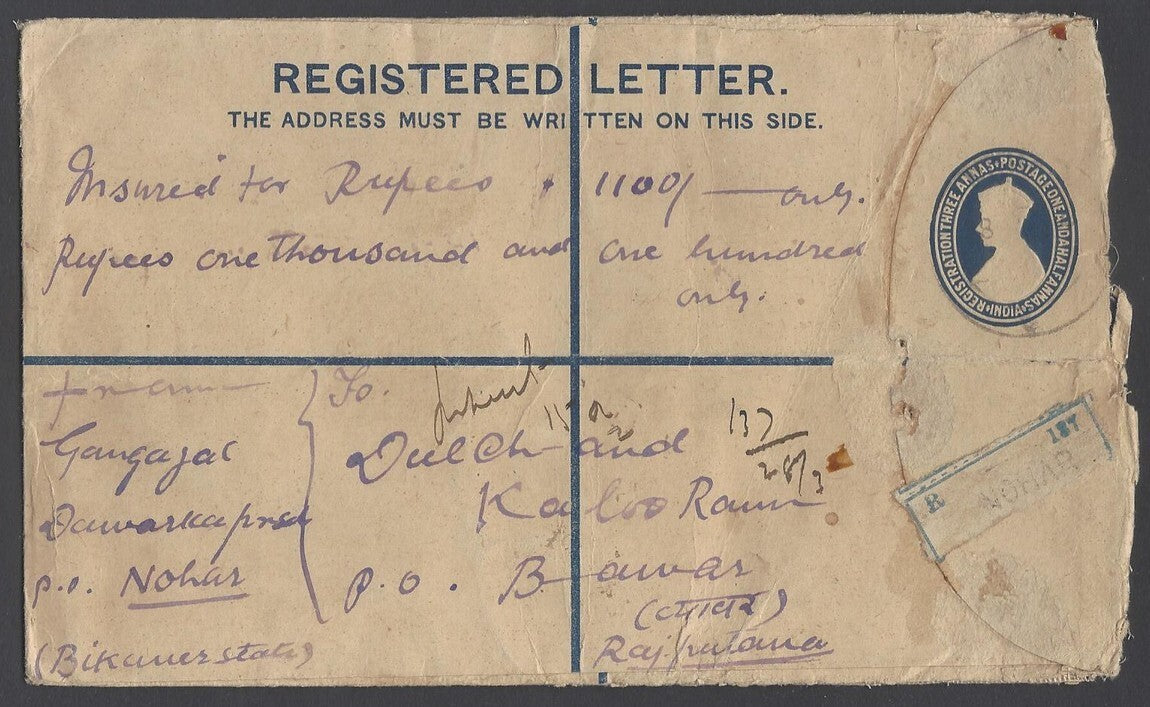 REGISTERED LETTER.
THE ADDRESS MUST BE WRITTEN ON THIS SIDE.
Insured for Rupees 1100/— only.
Rupees one thousand and one hundred
only.
REGISTRATION THREE ANNAS • POSTAGE ONE AND A HALF ANNAS • INDIA
From
Gangajal
Dawarkaprsd
P.O. Nohar
(Bikaner state)
To.
Dulchand
Kaloo Ram
P.O. Bawar
(ब्यावर)
Rajputana
137
28/3
R NOHAR 137